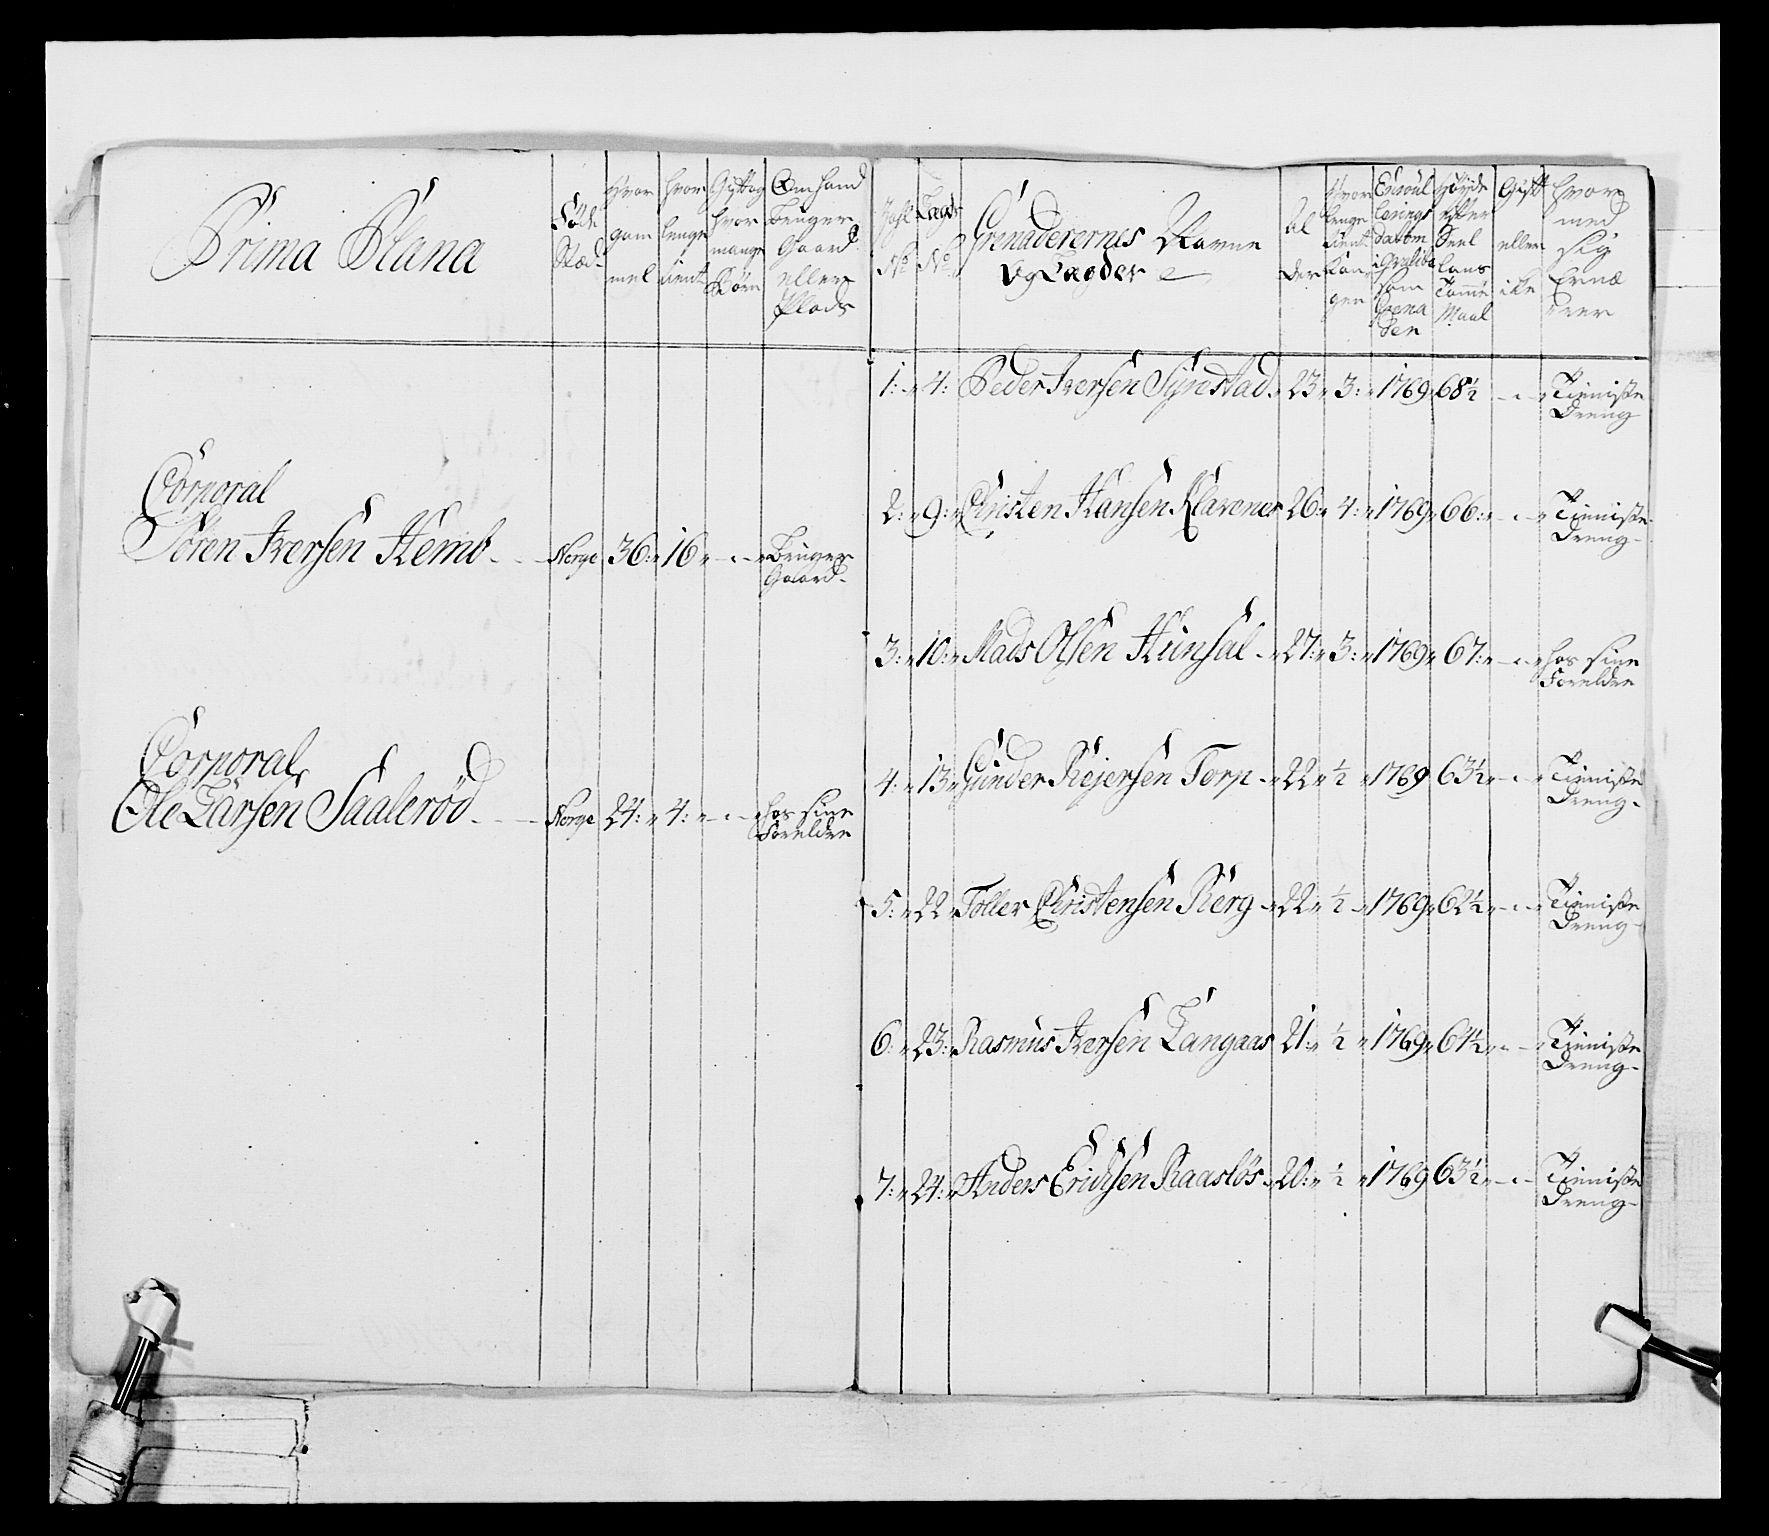 Prima Plana
Føde Stæd
Hvor gam mel
hvor lenge tient
Gift og hvor mange Børn
Om hand bruger Gaard eller Plads
Corporal
Søren Iversen Hemb - - Norge 36: 16 - - Bruger
Gaard-
Corporal
Ole Larsen Saalerød - - Norge 24: 4: - - hos sine
Forældre
No
Lægds No
Grenaderernes Navne
og Lægder
Al der
Hvor lenge tient Kon gen
som Grena der
Høyde efter Maal
Gift eller ike
Hvor med sig Ernæ rer
1: 4: Peder Iversen Synstad 23 3: 1769 68½ - Tieniste
Dreng
2: 9: Christen Hansen Klavenes 26: 4: 1769 66: - Tieniste
Dreng-
3: 10: Mads Olsen Hunsal 27: 3: 1769 67: - hos sine
Forældre
4: 13 Gunder Rejersen Torp 22 ½ 1769 63½ - Tieniste
Dreng-
5: 22 Toller Christensen Berg 22 ½ 1769 62½ - Tieniste
Dreng-
6: 23: Rasmus Iversen Langaas 21: ½ 1769 61½ - Tieniste
Dreng-
7: 24: Anders Erichsen Raasløs 20: ½ 1769 63½ - Tieniste
Dreng-